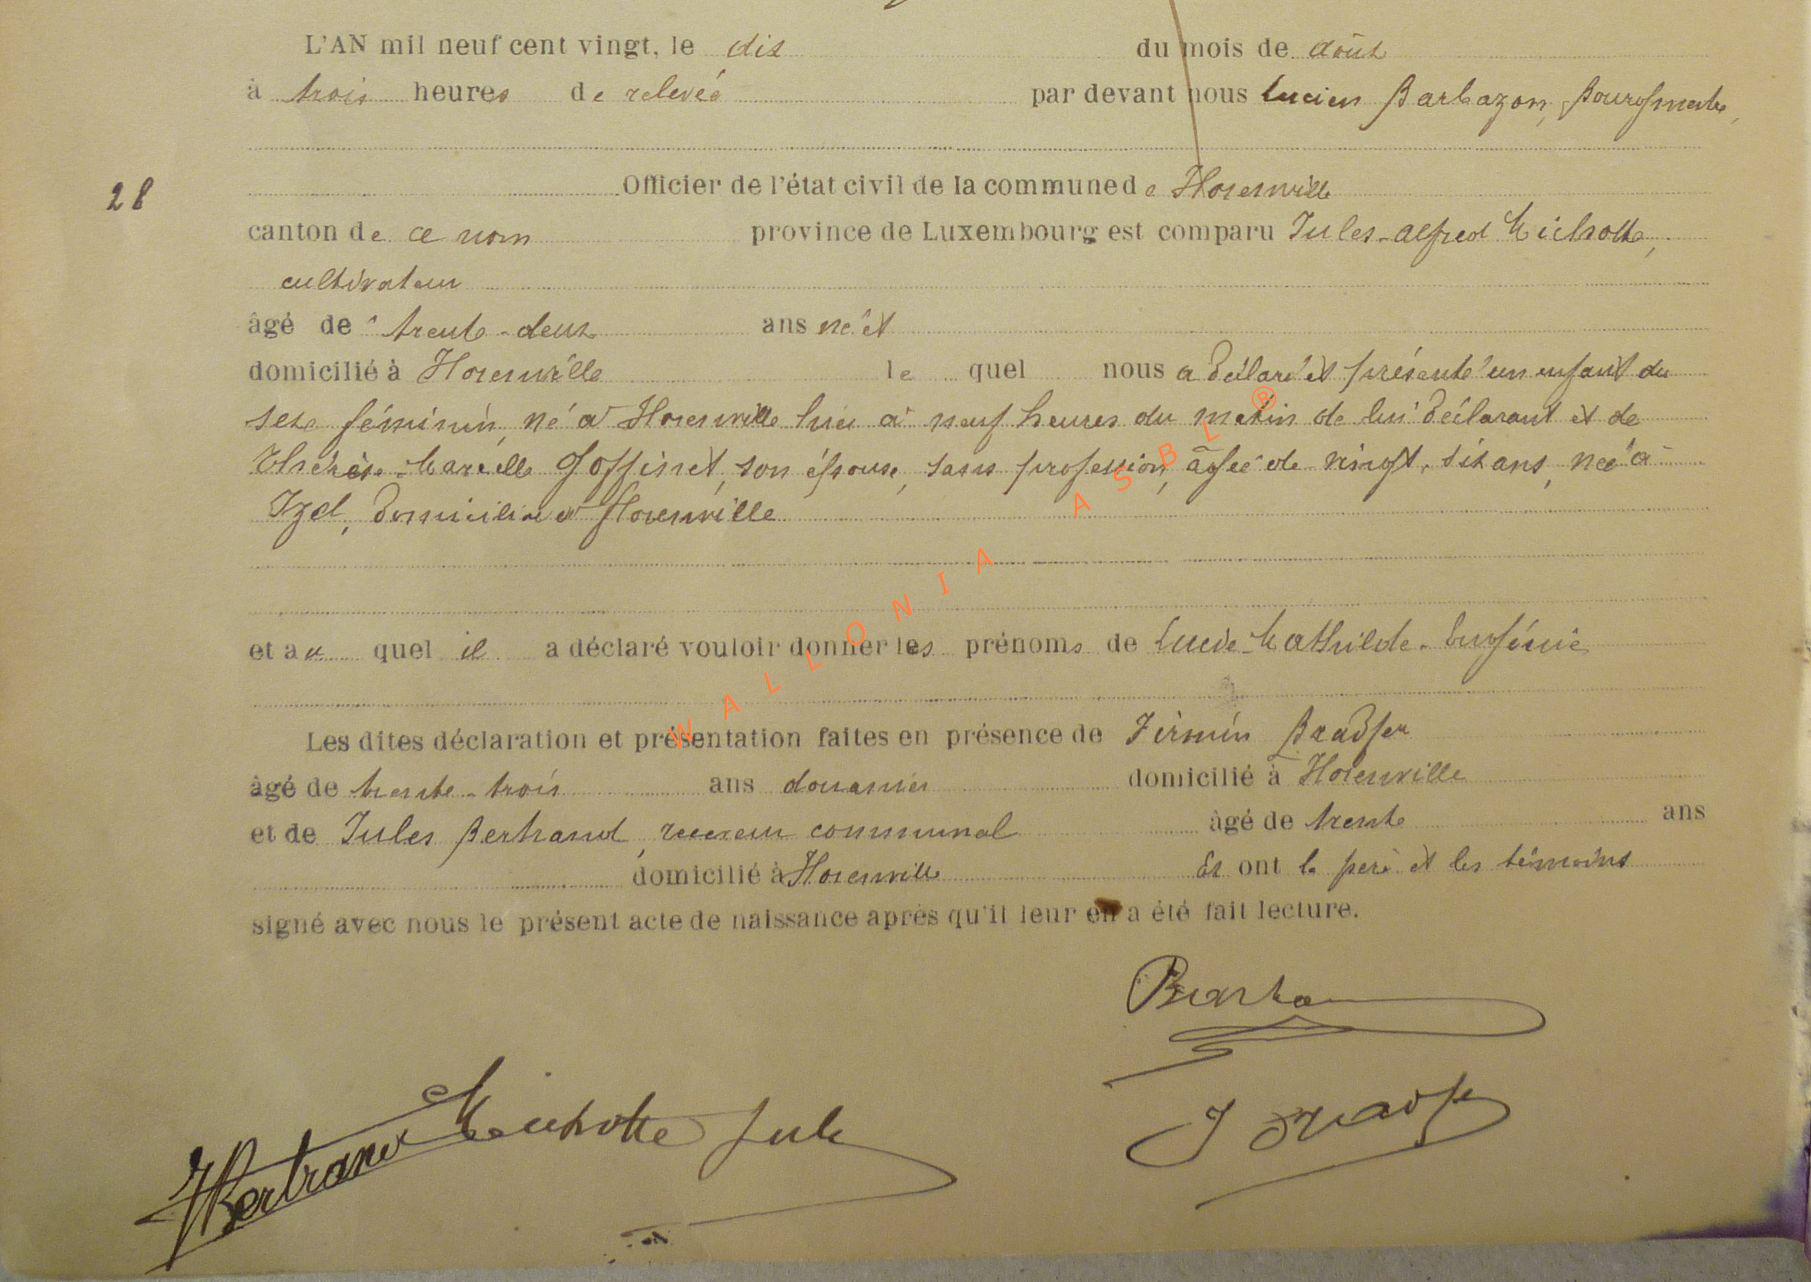 L'AN mil neuf cent vingt, le dix du mois de août
à trois heures de relevée par devant nous Lucien Barbazon, Bourgmestre,
28 Officier de l'état civil de la commune de Florenville
canton de ce nom province de Luxembourg est comparu Jules-Alfred Michotte,
cultivateur
âgé de trente-deux ans né et
domicilié à Florenville le quel nous a déclaré et présenté un enfant du
sexe féminin, né à Florenville hier à neuf heures du matin de lui déclarant et de
Thérèse-Marcelle Goffinet, son épouse, sans profession, âgée de vingt-six ans, née à
Izel, domiciliée à Florenville
et au quel il a déclaré vouloir donner les prénoms de Lucie-Mathilde-Eugénie
Les dites déclaration et présentation faites en présence de Firmin Bradfer
âgé de trente-trois ans douanier domicilié à Florenville
et de Jules Bertrand, receveur communal âgé de trente ans
domicilié à Florenville Et ont le père et les témoins
signé avec nous le présent acte de naissance après qu'il leur en a été fait lecture.
Barba
JBertrand Michotte Jules J Bradfer
WALLONIA ASBL ®